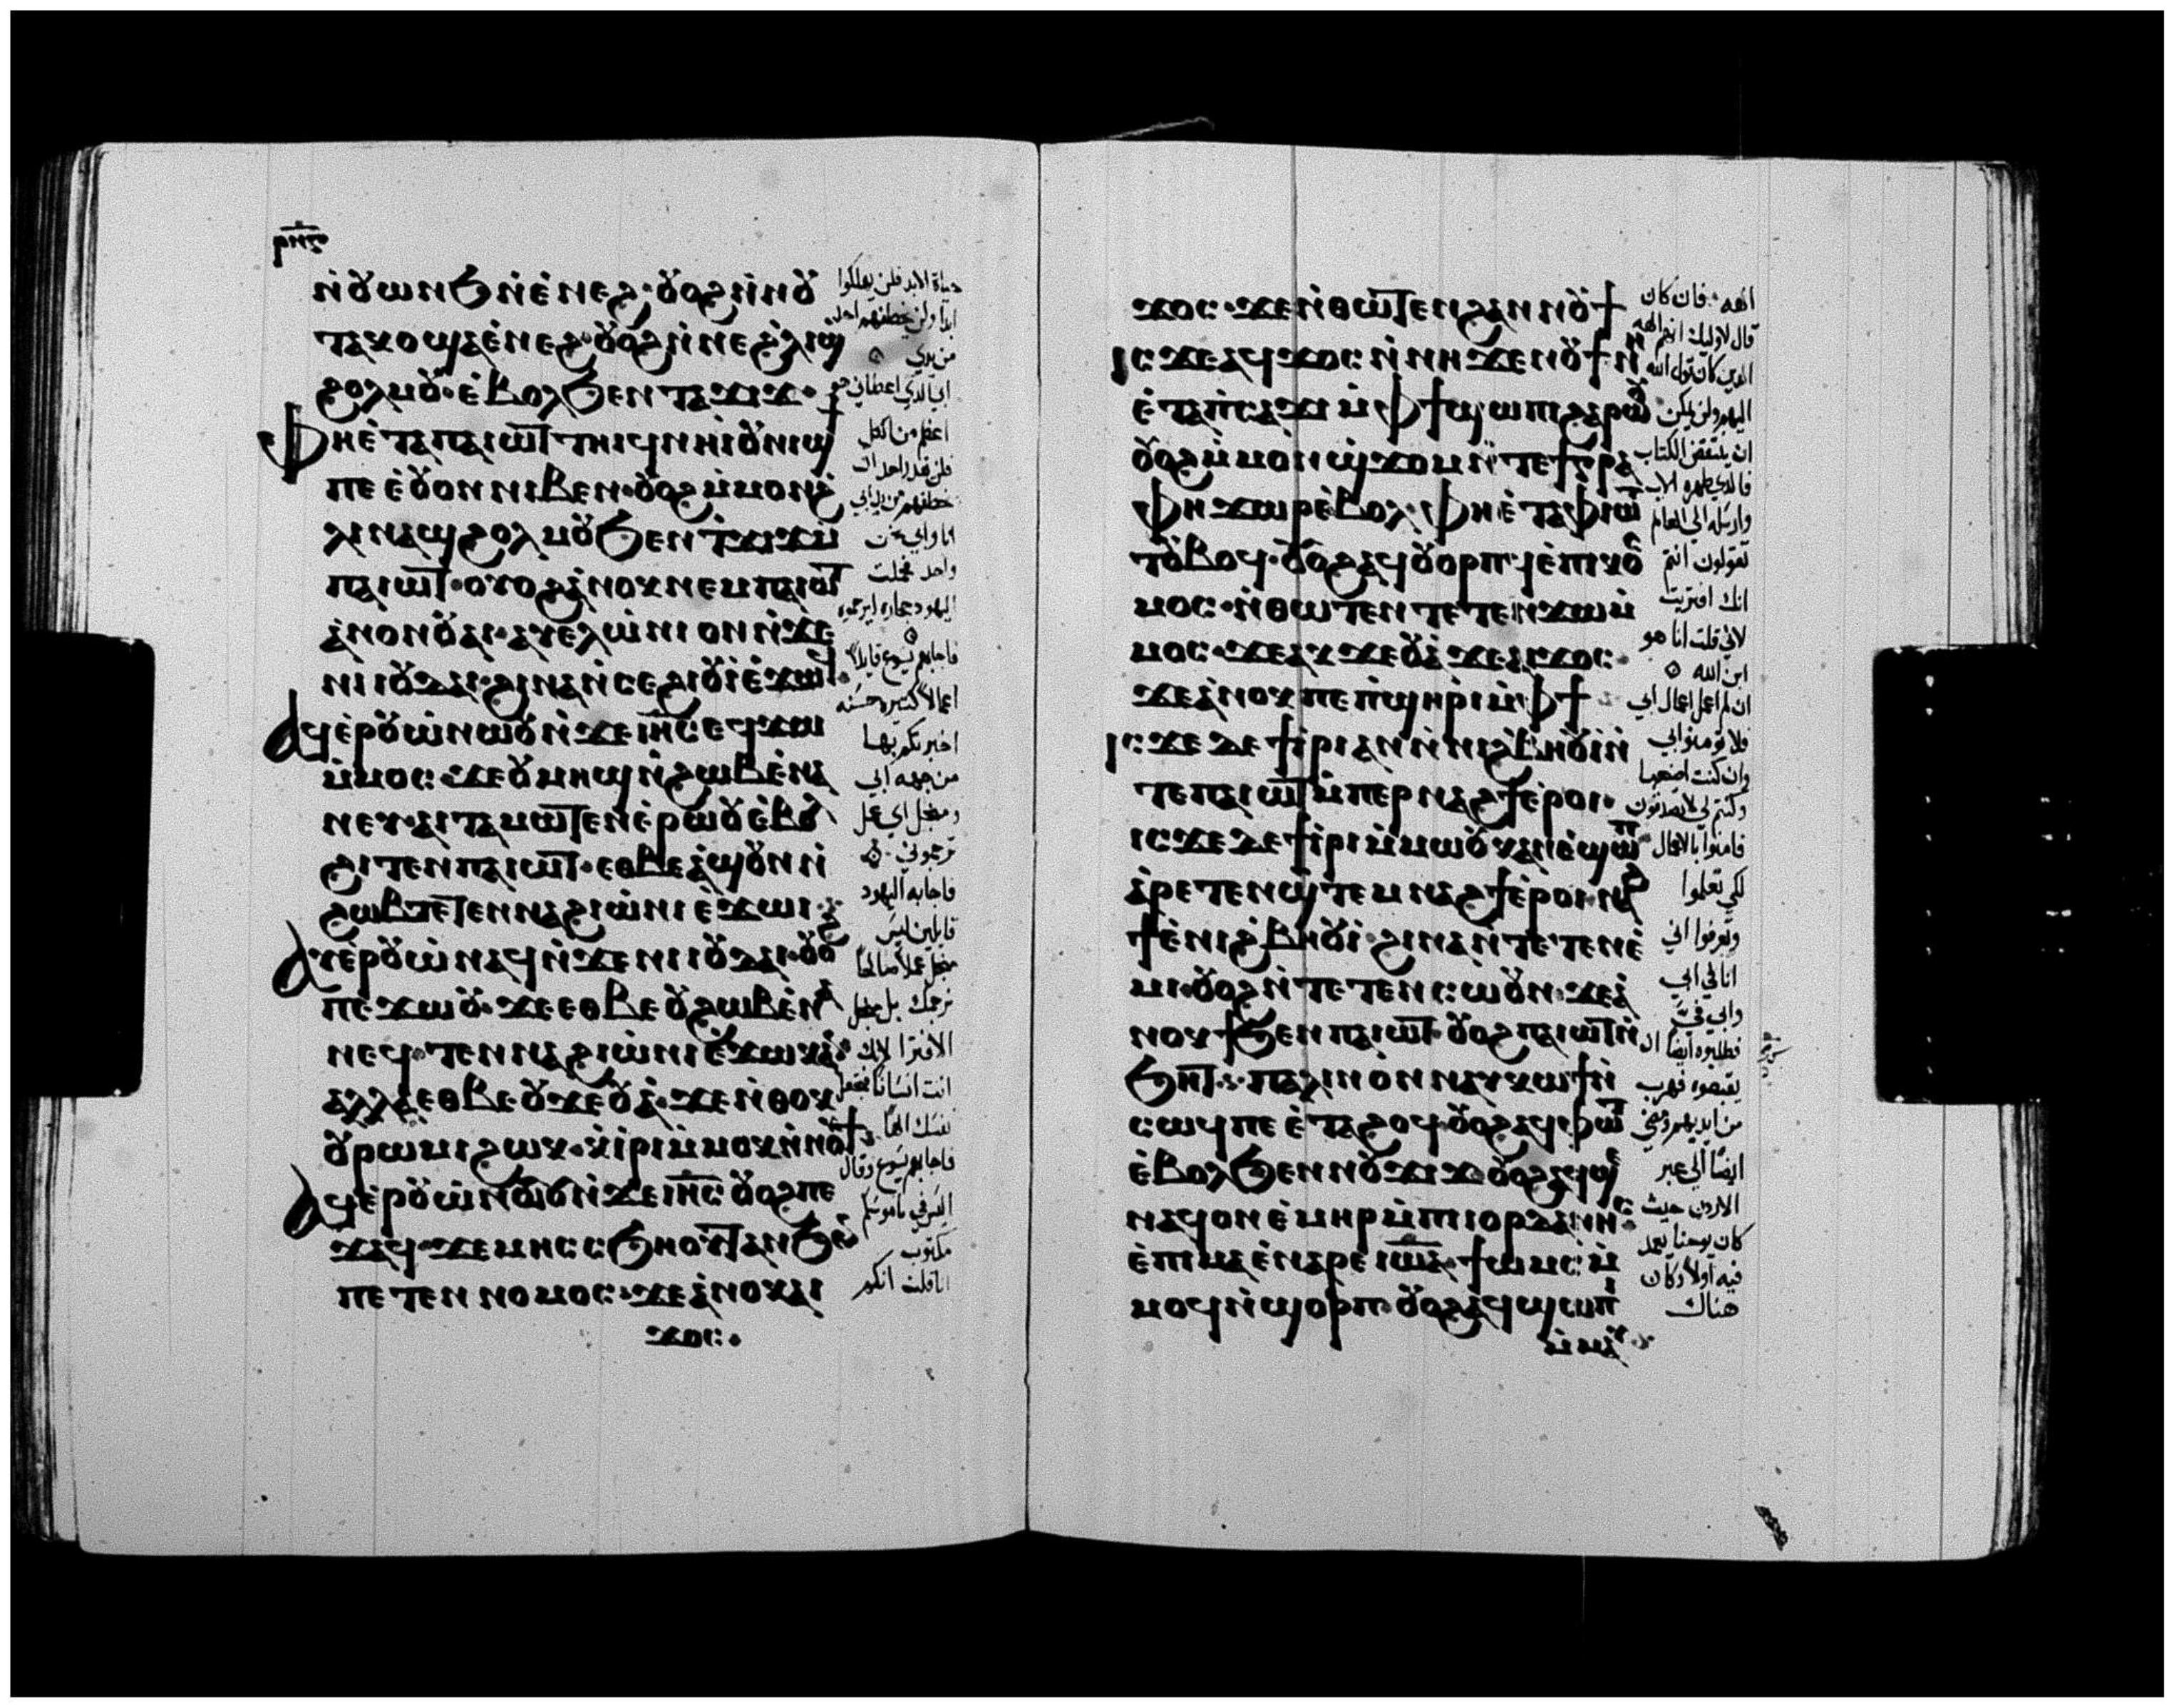 ⲣⲛ̅ⲋ
ⲛ̀ⲟⲩⲱⲛϧⲛ̀ⲉ̀ⲛⲉϩ· ⲟⲩⲟϩⲛ̀ⲛⲟⲩ
ⲧⲁⲕⲟϣⲁⲉ̀ⲛⲉϩ· ⲟⲩⲟϩⲛ̀ⲛⲉϩ̀ⲗⲓϣ
ϩⲟⲗⲙⲟⲩ· ⲉ̀ⲃⲟⲗϧⲉⲛⲧⲁϫⲓϫ·
ⲫⲏⲉ̀ⲧⲁⲡⲁⲓⲱⲧⲧⲏⲓϥⲛⲏⲓⲟⲩⲛⲓϣϯ
ⲡⲉⲉ̀ⲟⲩⲟⲛⲛⲓⲃⲉⲛ· ⲟⲩⲟϩⲙ̀ⲙⲟⲛϩ̀
ⲗⲓⲛⲁϣϩⲟⲗⲙⲟⲩϧⲉⲛⲧ̀ϫⲓϫⲙ̀
ⲡⲁⲓⲱⲧ· ⲟⲩⲟϩⲁ̀ⲛⲟⲕⲛⲉⲙⲡⲁⲓⲱⲧ
ⲁ̀ⲛⲟⲛⲟⲩⲁⲓ· ⲁⲩⲉⲗⲱ̀ⲛⲓⲟⲛⲛ̀ϫⲉ
ⲛⲓⲓⲟⲩⲇⲁⲓ· ϩⲓⲛⲁⲛ̀ⲥⲉϩⲓⲟⲩⲓ̀ⲉ̀ϫⲱϥ·
ⲁϥⲉ̀ⲣⲟⲩⲱ̀ⲛⲱⲟⲩⲛ̀ϫⲉⲓⲏ̅ⲥ̅ⲉϥϫⲱ
ⲙ̀ⲙⲟⲥ· ϫⲉⲟⲩⲙⲏϣⲛ̀ϩⲱⲃⲉ̀ⲛⲁ
ⲛⲉⲩ· ⲁⲓⲧⲁⲙⲱⲧⲉⲛⲉ̀ⲣⲱⲟⲩⲉ̀ⲃⲟⲗ
ϩⲓⲧⲉⲛⲡⲁⲓⲱⲧ· ⲉⲑⲃⲉⲁ̀ϣⲟⲩⲛⲛ̀
ϩⲱⲃⲧⲉⲧⲉⲛⲛⲁϩⲓⲱ̀ⲛⲓⲉ̀ϫⲱⲓ·
ⲁⲩⲉ̀ⲣⲟⲩⲱ̀ⲛⲁϥⲛ̀ϫⲉⲛⲓⲓⲟⲩⲇⲁⲓ· ⲟⲩⲟϩ
ⲡⲉϫⲱⲟⲩ· ϫⲉⲉⲑⲃⲉⲟⲩϩⲱⲃⲉ̀ⲛⲁ
ⲛⲉϥ· ⲧⲉⲛⲛⲁϩⲓⲱ̀ⲛⲓⲉ̀ϫⲱⲕⲁ̀ⲛ
ⲁⲗⲗⲁⲉⲑⲃⲉⲟⲩϫⲉⲟⲩⲁ̀· ϫⲉⲛ̀ⲑⲟⲕ
ⲟⲩⲣⲱⲙⲓϩⲱⲕ· ⲕ̀ⲓⲣⲓⲙ̀ⲙⲟⲕⲛ̀ⲛⲟⲩϯ
ⲁϥⲉ̀ⲣⲟⲩⲱ̀ⲛⲱⲟⲩⲛ̀ϫⲉⲓⲏ̅ⲥ̅ ⲟⲩⲟϩⲡⲉ
ϫⲁϥ· ϫⲉⲙⲏⲥⲥϧⲏⲟⲩⲧⲁⲛϧⲉⲛ
ⲡⲉⲧⲉⲛⲛⲟⲙⲟⲥ· ϫⲉⲁ̀ⲛⲟⲕⲁⲓ
ϫⲟⲥ·
حياة الابد فلن يهلكوا
ابدا ولن يخطفهم احد
من يدي
ابي الذي اعطاني هو
اعظم من الكل
فلن يقدر احد ان
يخطفهم من يد ابي
انا وابي نحن
واحد فحملت
اليهود حجاره ليرجموه
فاجابهم يسوع قايلا
اعمالا كثيره حسنه
اخبرتكم بها
من جهه ابي
ومن اجل اي عمل
ترجموني
فاجابه اليهود
قايلين ليس
من اجل عملا صالحا
نرجمك بل من اجل
الافترا لانك
انت انسانا تجعل
نفسك الها
فاجابهم يسوع وقال
اليس في ناموسكم
مكتوب
انا قلت انكم
ϫⲟⲥ· ϫⲉⲛ̀ⲑⲱⲧⲉⲛϩⲁⲛⲛⲟⲩϯ
ⲓⲥϫⲉⲁϥϫⲟⲥⲛ̀ⲛⲏϫⲉⲛⲟⲩϯⲛⲏ
ⲉ̀ⲧⲁⲡ̀ⲥⲁϫⲓⲙ̀ⲫϯϣⲱⲡⲓϩⲁⲣⲱⲟⲩ
ⲟⲩⲟϩⲙ̀ⲙⲟⲛϣ̀ϫⲟⲙⲛ̀ⲧⲉϯⲅⲣⲁ
ⲫⲏϫⲱⲣⲉ̀ⲃⲟⲗ· ⲫⲏⲉ̀ⲧⲁⲫⲓⲱⲧ
ⲧⲟⲩⲃⲟϥ· ⲟⲩⲟϩⲁϥⲟⲩⲟⲣⲡϥⲉ̀ⲡⲓⲕⲟ
ⲙⲟⲥ· ⲛ̀ⲑⲱⲧⲉⲛⲧⲉⲧⲉⲛϫⲱⲙ̀
ⲙⲟⲥ· ϫⲉⲁⲕϫⲉⲟⲩⲁ̀ϫⲉⲁⲓϫⲟⲥ·
ϫⲉⲁ̀ⲛⲟⲕⲡⲉⲡ̀ϣⲏⲣⲓⲙ̀ⲫϯ
ⲓⲥϫⲉⲇⲉϯⲓ̀ⲣⲓⲁⲛⲛ̀ⲛⲓϩ̀ⲃⲏⲟⲩⲓ̀ⲛ̀
ⲧⲉⲡⲁⲓⲱⲧⲙ̀ⲡⲉⲣⲛⲁϩϯⲉ̀ⲣⲟⲓ·
ⲓⲥϫⲉⲇⲉϯⲓ̀ⲣⲓⲙ̀ⲙⲱⲟⲩⲕⲁⲛⲉ̀ϣⲱⲡ
ⲁ̀ⲣⲉⲧⲉⲛϣ̀ⲧⲉⲙⲛⲁϩϯⲉ̀ⲣⲟⲓ· ⲛⲁϩ
ϯⲉ̀ⲛⲓϩ̀ⲃⲏⲟⲩⲓ̀· ϩⲓⲛⲁⲛ̀ⲧⲉⲧⲉⲛⲉ̀
ⲙⲓ· ⲟⲩⲟϩⲛ̀ⲧⲉⲧⲉⲛⲥⲱⲟⲩⲛ· ϫⲉⲁ̀
ⲛⲟⲕϯϧⲉⲛⲡⲁⲓⲱⲧ· ⲟⲩⲟϩⲡⲁⲓⲱⲧⲛ̀
ϧⲏⲧ· ⲡⲁⲗⲓⲛⲟⲛⲛⲁⲩⲕⲱϯⲛ̀
ⲥⲱϥⲡⲉⲉ̀ⲧⲁϩⲟϥ· ⲟⲩⲟϩⲁϥⲫⲱⲧ
ⲉ̀ⲃⲟⲗϧⲉⲛⲛⲟⲩϫⲓϫ· ⲟⲩⲟϩⲁϥϣⲉ
ⲛⲁϥⲟⲛⲉ̀ⲙⲏⲣⲙ̀ⲡⲓⲓⲟⲣⲇⲁⲛⲏⲥ
ⲉ̀ⲡⲓⲙⲁⲉ̀ⲛⲁⲣⲉⲓⲱ̅ⲁ̅· ϯⲱⲙⲥⲙ̀
ⲙⲟϥⲛ̀ϣⲟⲣⲡ· ⲟⲩⲟϩⲁϥϣⲱⲡⲓ
ⲙ̀ⲙⲁⲩ
الهه فان كان
قال لاوليك انهم الهه
الذين كان قول الله
اليهم ولن يمكن
ان ينتقض الكتاب
فالذي طهره الاب
وارسله الي العالم
تقولون انتم
انك افتريت
لاني قلت انا هو
ابن الله
ان لم اعمل اعمال ابي
فلا تومنوا بي
وان كنت اصنعها
وكنتم لي لا تصدقون
فامنوا بالاعمال
لكي تعلموا
وتعرفوا اني
انا في ابي
وابي فيّ
فطلبوه ايضا ان
يقبضوه فهرب
من ايديهم ومضي
ايضا الي عبر
الاردن حيث
كان يوحنا يعمد
فيه اولا وكان
هناك